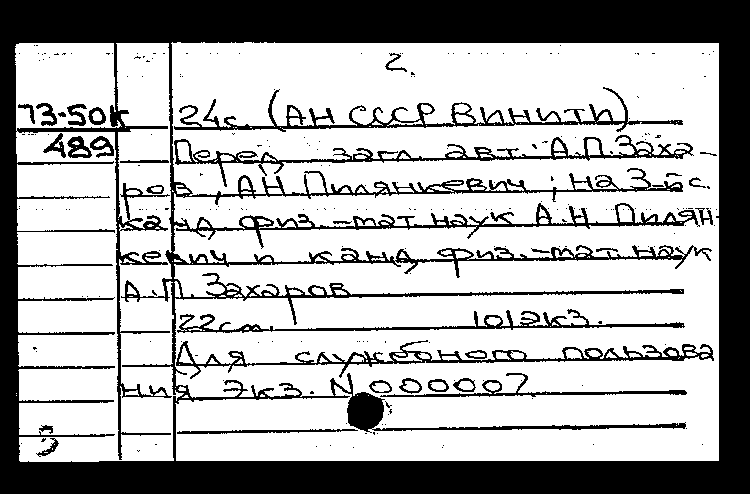 2.
73-50к 24с. (АН СССР ВИНИТИ)
489 Перед загл. авт.: А.П.Заха-
ров, АН.Пилянкевич; на 3-й с.
канд физ.-мат. наук А.Н. Пилян-
кевич и канд физ.-мат. наук
А.П.Захаров
22см. 101экз.
Для служебного пользова
ния Экз. N 000007